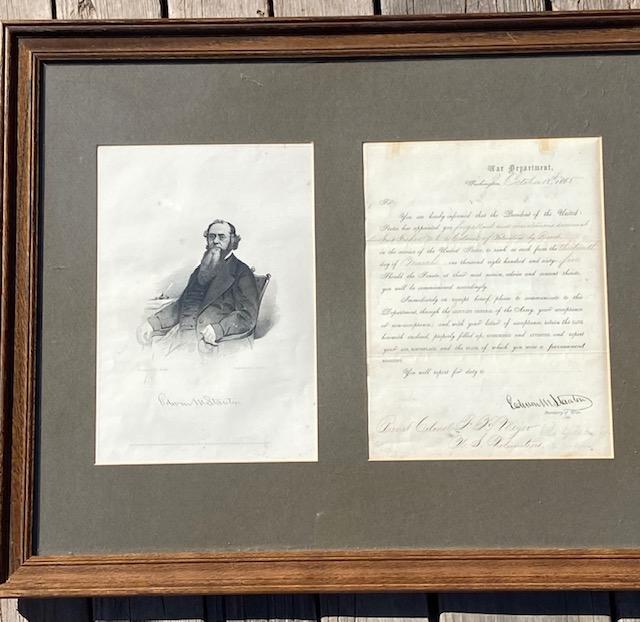 Edwin M Stanton
War Department,
Washington, October 1865
Sir:
You are hereby informed that the President of the United
States has appointed you, for gallant and meritorious
Colonel of Volunteers by Brevet
in the service of the United States, to rank as such from the thirteenth
day of March one thousand eight hundred and sixty-five
Should the Senate, at their next session, advise and consent thereto,
you will be commissioned accordingly.
Immediately on receipt hereof, please to communicate to this
Department, through the ADJUTANT GENERAL of the Army, your acceptance
or non-acceptance; and, with your letter of acceptance, return the OATH
herewith enclosed, properly filled up, SUBSCRIBED and ATTESTED, and report
your AGE, BIRTHPLACE, and the STATE of which you were a permanent
RESIDENT.
You will report for duty to
Edwin M Stanton
Secretary of War.
Brevet Colonel Meyer
U. S. Volunteers